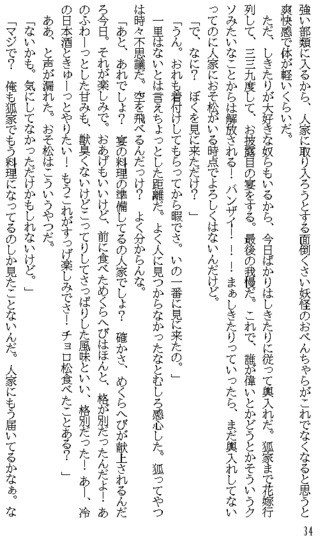 強い部類に入るから、人家に取り入ろうとする面倒くさい妖怪のおべんちゃらがこれでなくなると思うと
爽快感で体が軽くいらだ。
ただ、しきたりが大好きな奴らもいるから、今日ばかりはしきたりに従って輿入れだ。狐家まで花嫁行
列して、三三九度して、お披露目の宴をする。最後の我慢だ。これで、誰が偉いとかどうとかそういうク
ソみたいなことからは解放される！　バンザイ！！！　まぁしきたりっていったら、まだ輿入れしてない
ってのに人家におそ松がいる時点でよろしくはないんだけど。
「で、なに？　ぼくを見に来ただけ？」
「うん。おれも着付けしてもらってから暇でさ。いの一番に見に来たの。」
一里はないとは言えちょっとした距離だ。よく人に見つからなかったなとむしろ感心した。狐ってやつ
は時々不思議だ。空を飛べるんだっけ？　よく分からんな。
「あと、あれでしょ？　宴の料理の準備してるの人家でしょ？　確かさ、めくらへびが献上されるんだ
ろ今日。それが楽しみで。おあげもいいけど、前に食べためくらへびはほんと、格が別だったんだよ！あ
のふわーっとした甘みも、獣臭くないけどこってりしてさっぱりした風味といい、格別だった！あー、冷
の日本酒ときゅーっとやりたい！もうこれがすっげ楽しみでさ！チョロ松食べたことある？　」
ああ、と声が漏れた。おそ松はこういうやつだ。
「ないかも。気にしてなかっただけかもしれないけど。」
「マジで？　俺も狐家でもう料理になってるのしか見たことないんだ。人家にもう届いてるかなぁ。な
34